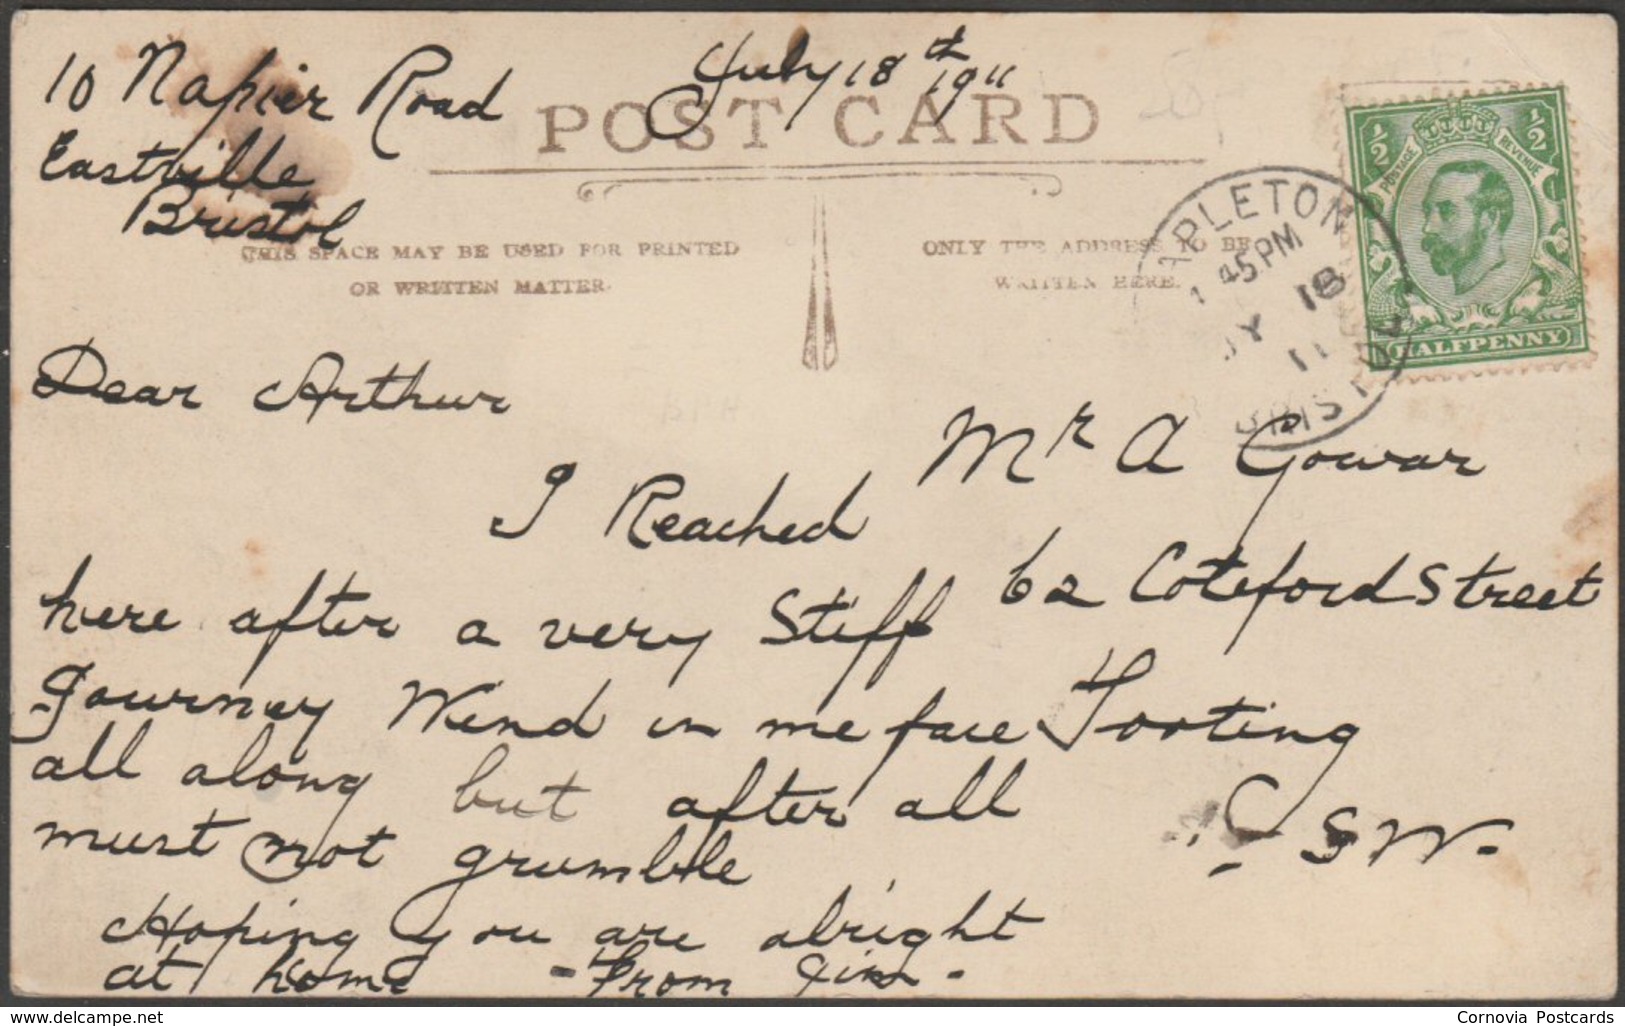 10 Napier Road
July 18th 1911
Eastville
Bristol
POST CARD
THIS SPACE MAY BE USED FOR PRINTED
OR WRITTEN MATTER.
ONLY THE ADDRESS TO BE
WRITTEN HERE.
1 45PM
JY 18
11
BRISTOL
½ ½
POSTAGE REVENUE
HALFPENNY
Dear Arthur
I Reached
here after a very Stiff
Journey Wind in me face
all along but after all
must not grumble
Hoping you are alright
at home - From Jim -
Mr A Gowar
62 Coteford Street
Tooting
S W.
Cornovia Postcards
delcampe.net